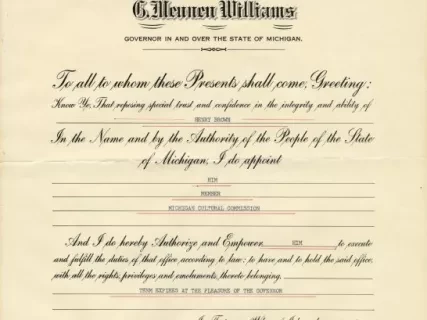 G. Mennen Williams
GOVERNOR IN AND OVER THE STATE OF MICHIGAN.
To all to whom these Presents shall come, Greeting:
Know Ye, That reposing special trust and confidence in the integrity and ability of
HENRY BROWN
In the Name and by the Authority of the People of the State
of Michigan, I do appoint
HIM
MEMBER
MICHIGAN CULTURAL COMMISSION
And I do hereby Authorize and Empower HIM to execute
and fulfill the duties of that office according to law; to have and to hold the said office,
with all the rights, privileges and emoluments, thereto belonging.
TERM EXPIRES AT THE PLEASURE OF THE GOVERNOR